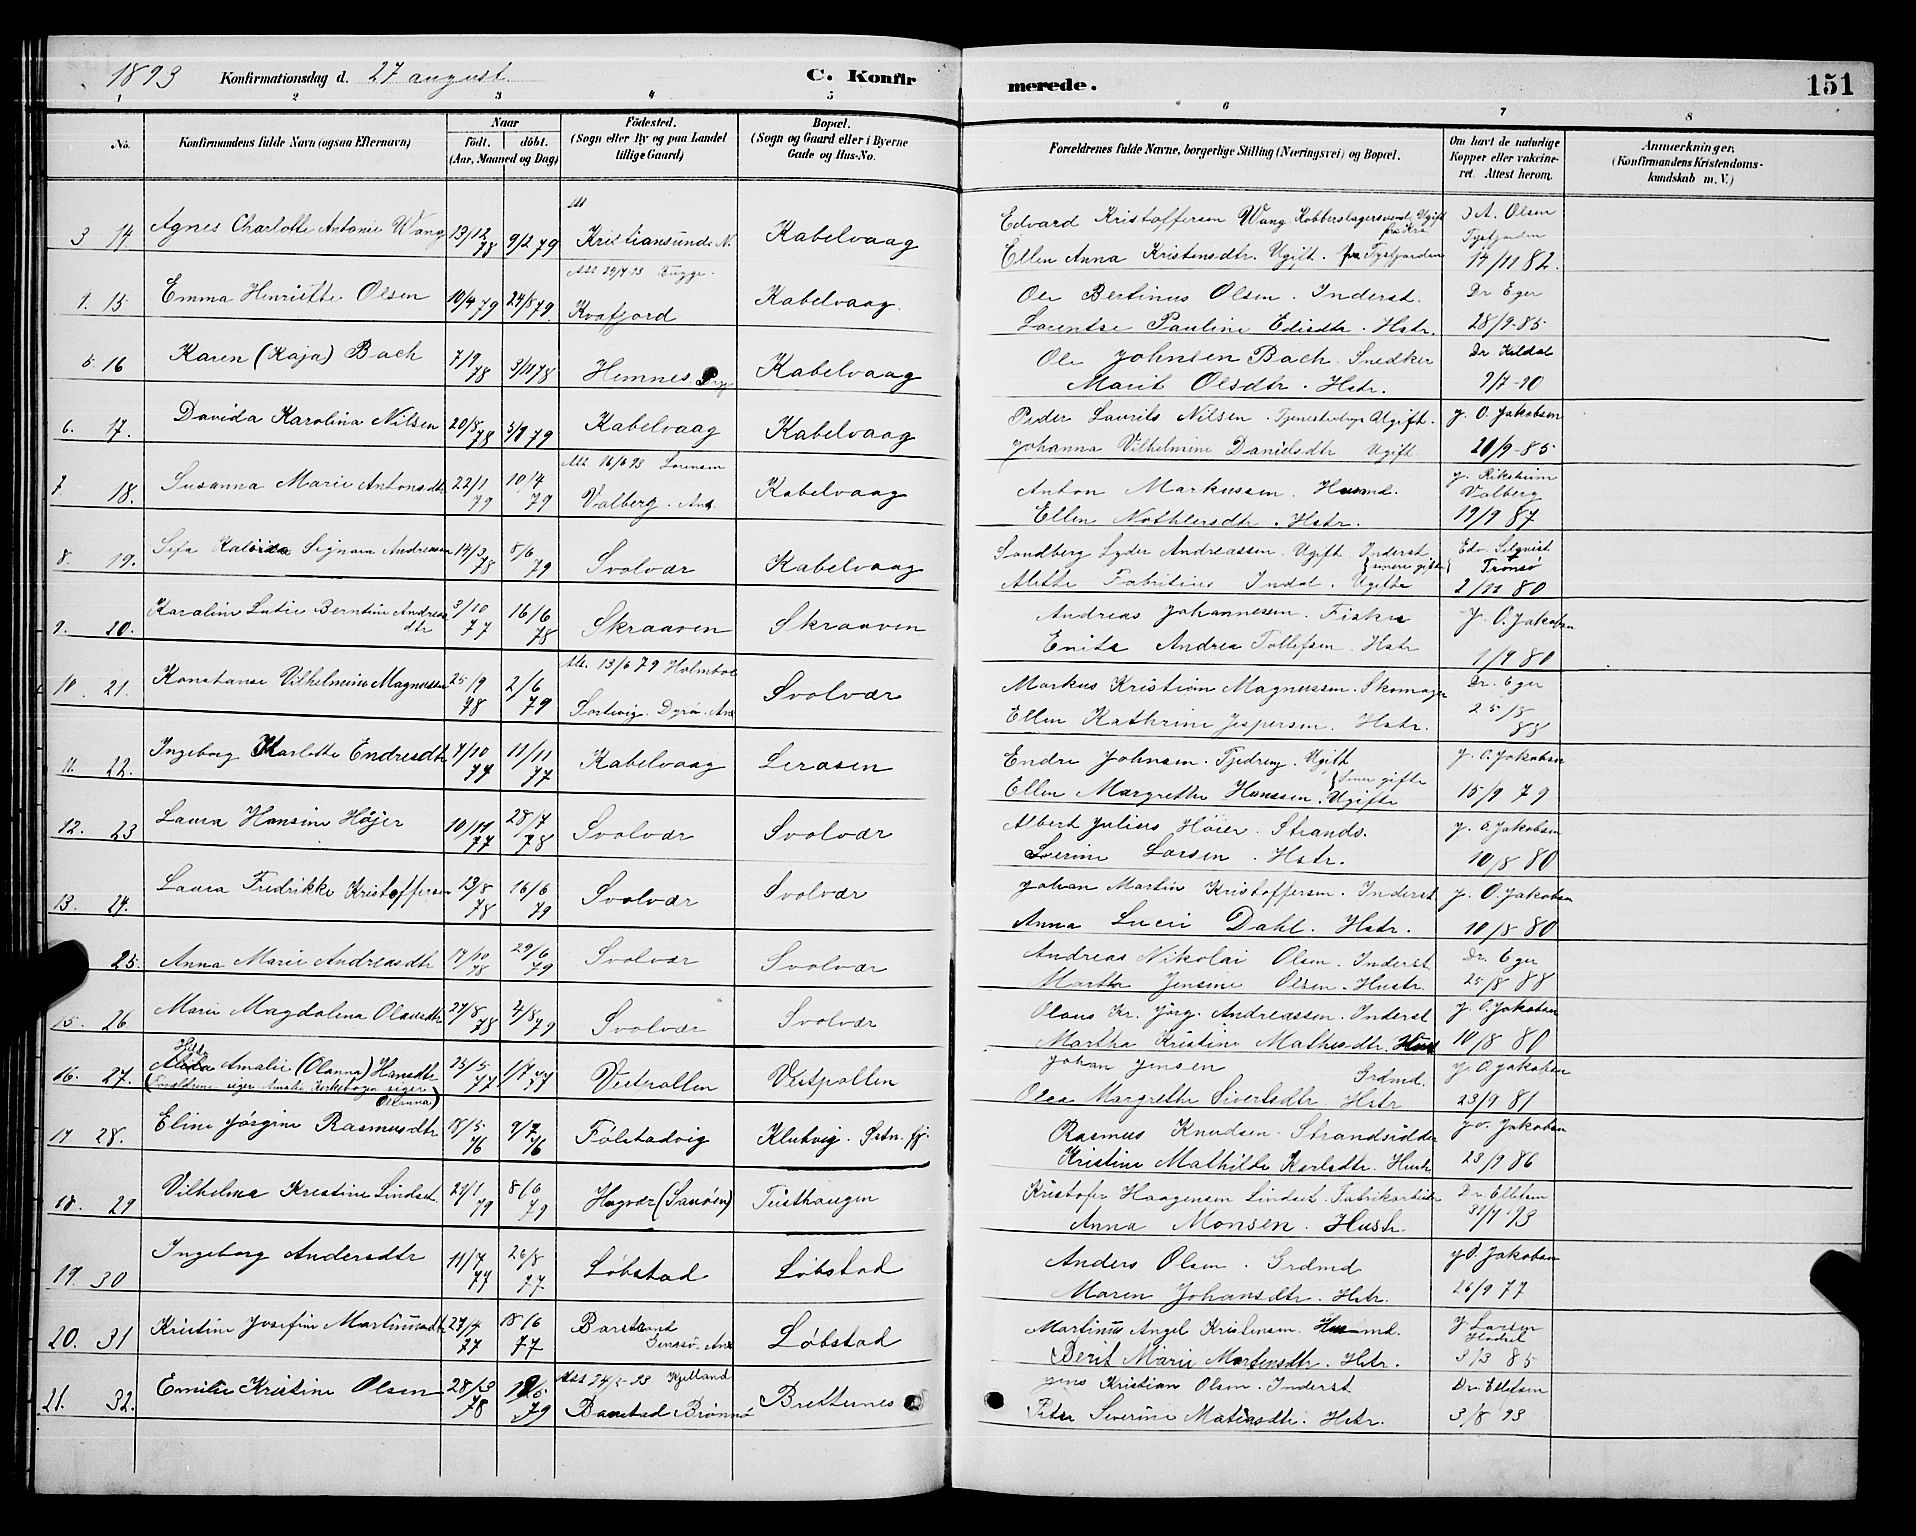 1893 Konfirmationsdag d. 27 august. C. Konfirmerede. 151
1 2 3 4 5 6 7 8
No. Konfirmandens fulde Navn (ogsaa Efternavn) Naar Födt. döbt. (Aar, Maaned og Dag) Födested. (Sogn eller By og paa Landet tillige Gaard) Bopæl. (Sogn og Gaard eller i Byerne Gade og Hus-No. Forældrenes fulde Navne, borgerlige Stilling (Næringsvei) og Bopæl. Om havt de naturlige Kopper eller vakcineret. Attest herom. Anmærkninger. (Konfirmandens Kristendomskundskab m. V.)
3 14. Agnes Charlotte Antonie Wang 13/12 78 9/2 79 Att Kristiansund N. Kabelvaag Edvard Kristoffersen Wang Kobberslagersvend, Ugift fra Kra A. Olsen Tysfjorden
Ellen Anna Kristensdtr. Ugift. fra Tysfjorden 14/11 82.
15 Emma Henriette Olsen 10/4 79 24/8 79 Att 29/7 93 Bugge. Kvæfjord Kabelvaag. Ole Bertinus Olsen. Inderst. Dr Eger
Laurentse Pauline Edisdtr. Hstr. 28/9-85
5 16 Karen (Kaja) Bach 7/9 78 3/11 78 Hemnes Kabelvaag Ole Johnsen Bach. Snedker Dr Kildal
Marit Olsdtr. Hstr. 9/7-90
6. 17. Davida Karolina Nilsen 20/8 78 79 Kabelvaag Kabelvaag Peder Laurits Nilsen. Ugift. J. O. Jakobsen
Johanna Vilhelmine Danielsdtr Ugift 20/9-85
7. 18. Susanna Marie Antonsdtr 22/1 79 10/4 79 Att 16/6 93 Sorensen Valberg. Anx. Kabelvaag Anton Markussen. Husmd. J. Rikheim Valberg
Ellen Nothlersdtr. Hstr. 19/9 87
8. 19. Signora Andreasen 14/3 78 8/6 79 Svolvær Kabelvaag Sandberg Lyder Andreassen. Ugift Inderst. Edv. Selqvist Tromsø
Alette Fabritius Indal. Ugifte {senere gifte} 2/11 80
9. 20. Karoline Lutie Berntine Andreasdtr 3/10 77 16/6 78 Skraaven Skraaven Andreas Johannessen. Fisker J. O. Jakobsen
Andrea Tollefsen. Hstr 1/9 80
10. 21. Konstanse Vilhelmine Magnussen 25/9 78 2/6 79 Att. 13/6 79 Holmboe Sortvig. Dyrø. Anx Svolvær Markus Kristian Magnussen. Skomager Dr. Eger
Ellen Kathrine Jespersen. Hstr. 25/8 88
11. 22. Ingeborg Karlotte Endresdtr 7/10 77 11/11 77 Kabelvaag Leraasen Endre Johnsen. Tjedreng. Ugift J. O. Jakobsen
Ellen Margrethe Hanssen. Ugifte {senere gifte 15/9 79
12. 23 Laura Hansine Højer 10/11 77 28/7 78 Svolvær Svolvær Albert Julius Höier. Strands. J. O. Jakobsen
Severine Larsen. Hstr. 10/8 80
13. 24. Laura Fredrikke Kristoffersen 13/8 78 16/6 79 Svolvær Svolvær Johan Martin Kristoffersen. Inderst J. O. Jakobsen
Anna Lucie Dahl. Hstr. 10/8 80
25. Anna Marie Andreasdtr 17/10 78 29/6 79 Svolvær Svolvær Andreas Nikolai Olsen. Inderst Dr. Eger
Martha Jensine Olsen. Hustr. 25/8 88
15. 26 Marie Magdalena Olausdtr 27/8 78 2/8 79 Svolvær Svolvær Olaus Kr. Jørg. Andreassen. Inderst J. O. Jakobsen
Martha Kristine Mathisdtr. Hust 10/8 80
16. 27. Amalie (Olanna) Hansdtr 25/5 77 1/7 77 Vestpollen Vestpollen Johan Jensen Grdmd. J O Jakobsen
(Forældrene siger Amalie Kirkebogen siger Olanna) Olea Margrethe Sivertsdtr. Hstr 23/9 81
17 28. Eline Jørgine Rasmusdtr 18/5 76 9/7 76 Følstadvig Klutvig. Østn. fj. Rasmus Knudsen. Strandsidder J. O. Jakobsen
Kristine Mathilde Karlsdtr. Hustr 23/9 86
18. 29 Vilhelma Kristine Lindset. 29/1 79 8/6 79 Hagvær (Sanøen) Teisthaugen Kristofer Haagensen Lindset. Fabrikarbeider Dr. Ellefsen
Anna Monsen. Hustr. 31/7 93
19. 30 Ingeborg Andersdtr 11/7 77 26/8 77 Løbstad Løbstad Anders Olsen. Grdmd J O. Jakobsen
Maren Johansdtr. Hstr. 26/9 77
20. 31 Kristine Josefine Martinusdtr 27/4 77 18/6 77 Barstrand Gimsø. Anx Løbstad Martinus Angel Kristensen. Husmd. J Larsen Hadsel
Berit Marie Mortensdtr. Hstr. 3/3 85
21. 32. Emilie Kristine Olsen 28/13 78 79 Att 24/5-93 Kjelland Baustad Brønnø Brettesnes Jens Kristian Olsen. Inderst Dr. Ellefsen
Petra Severine Matiasdtr. Hstr. 3/8 93